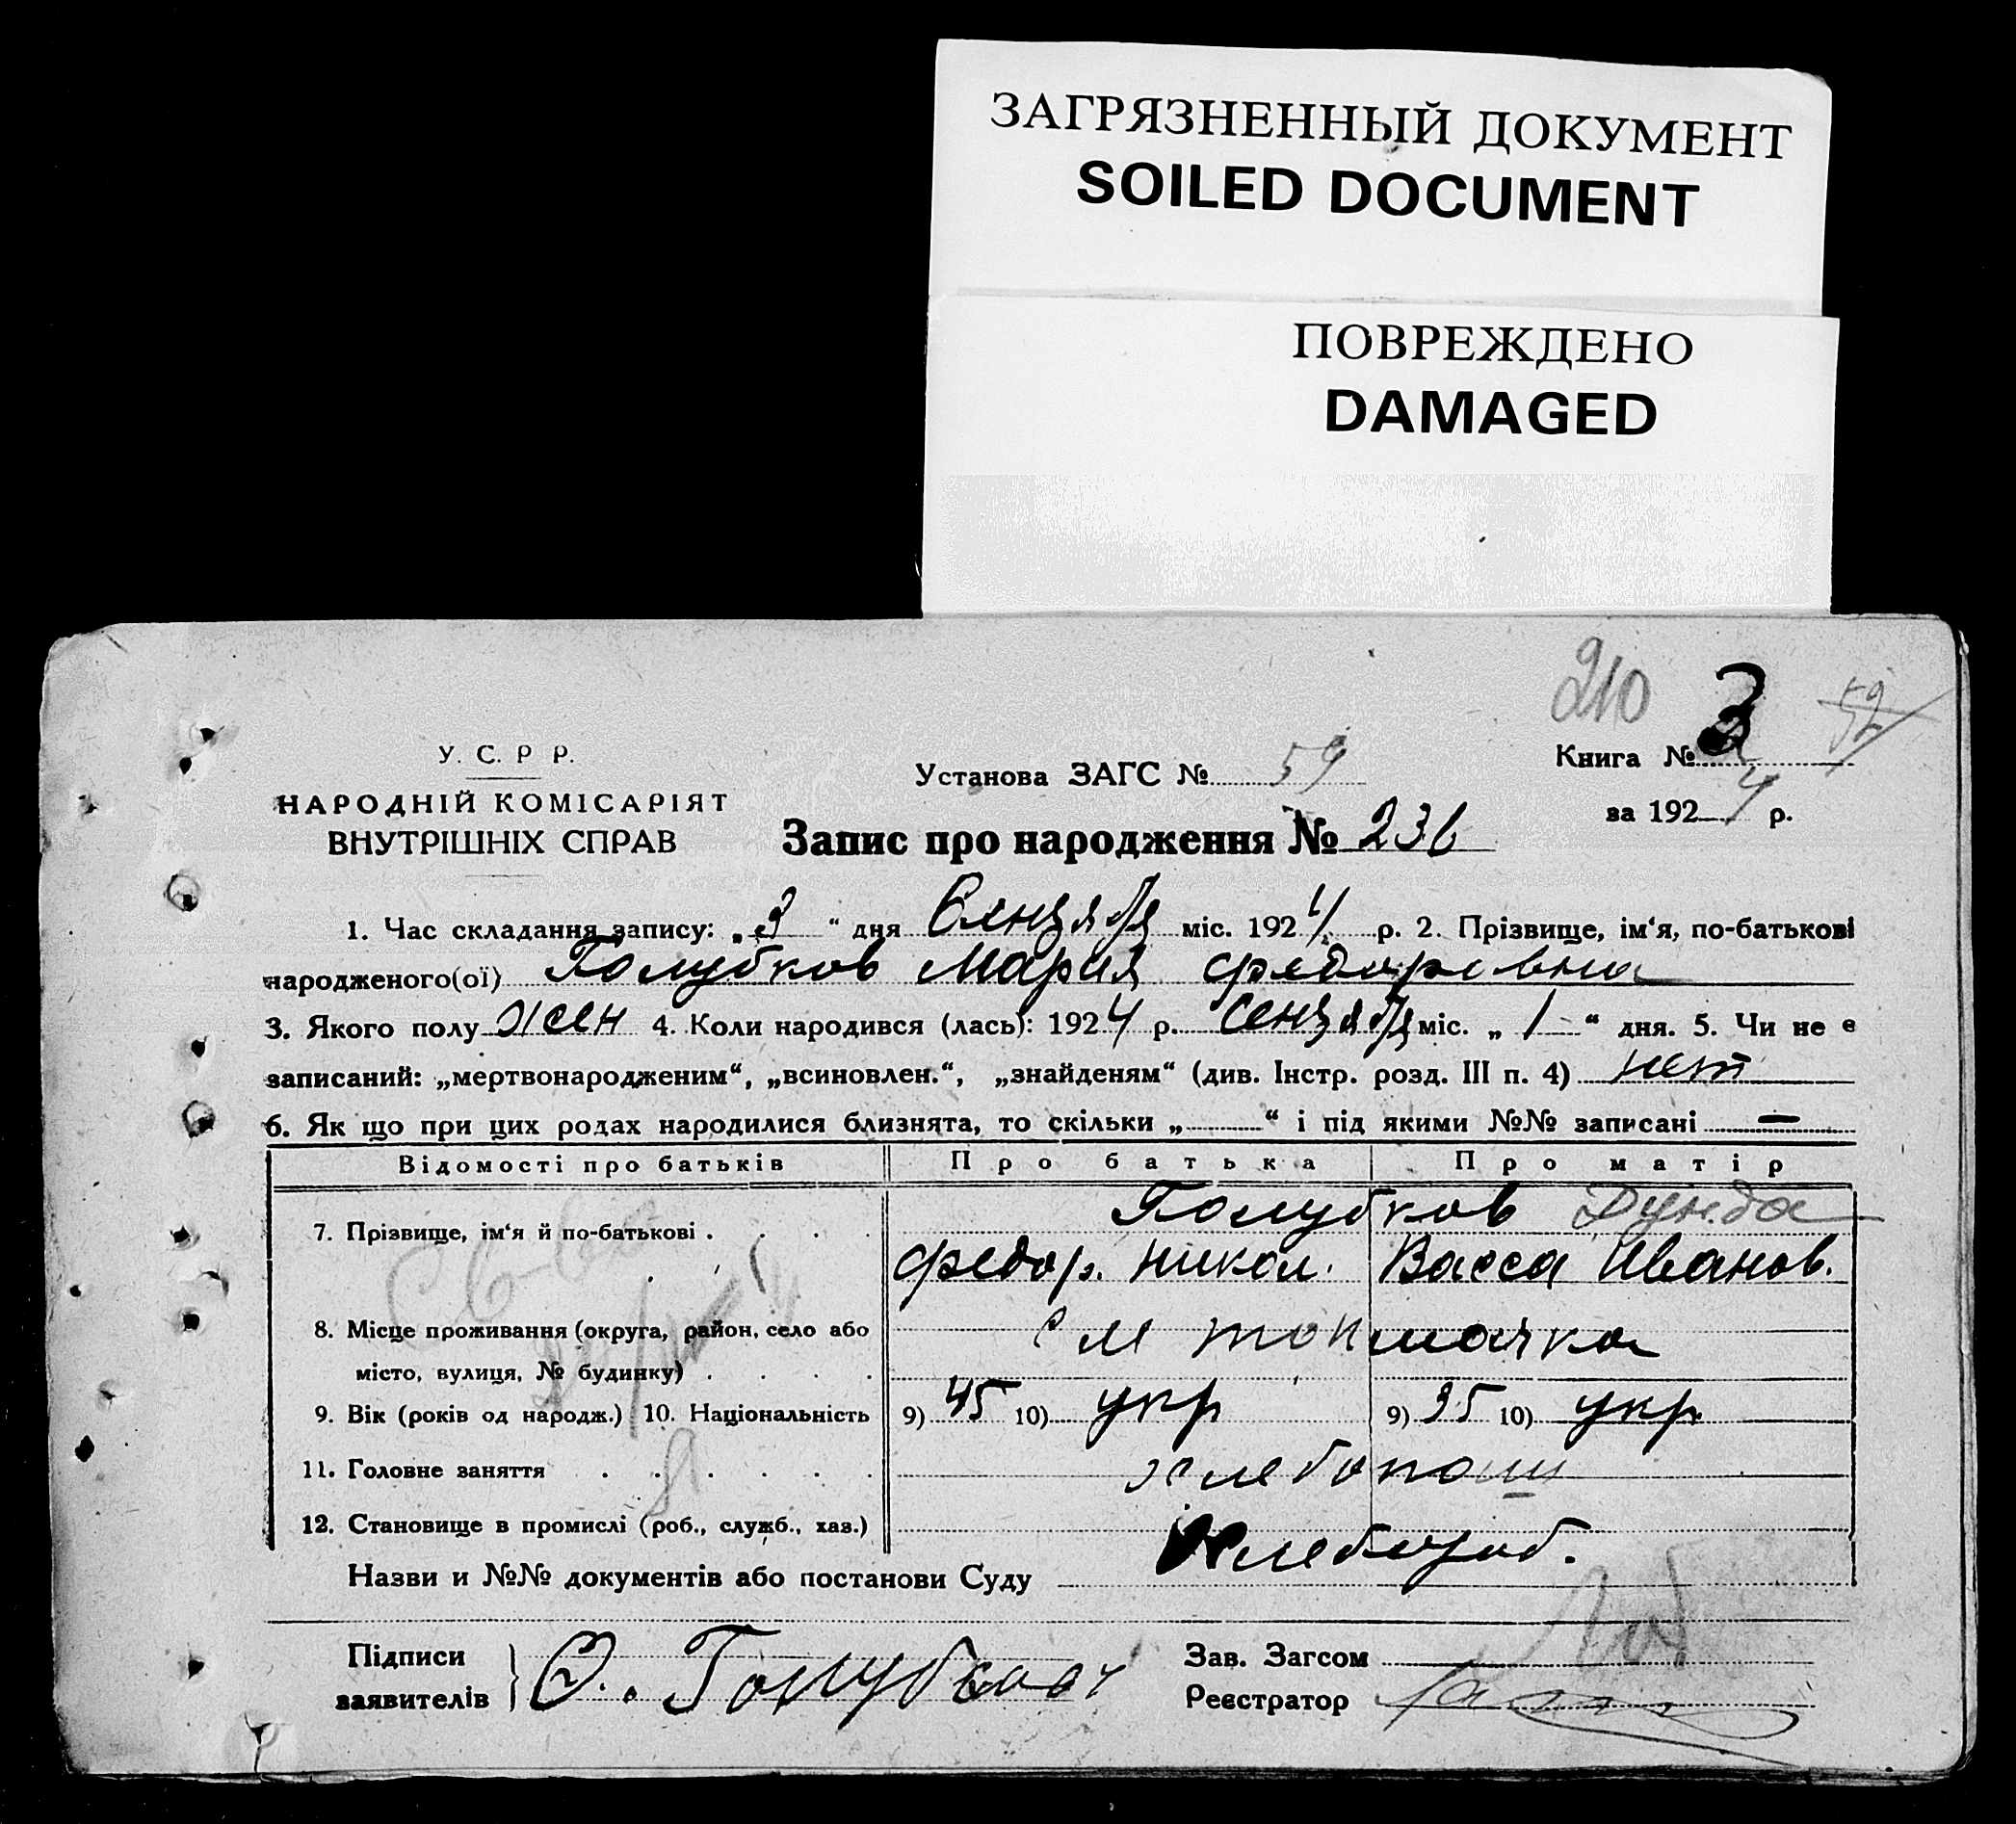 ЗАГРЯЗНЕННЫЙ ДОКУМЕНТ
SOILED DOCUMENT
ПОВРЕЖДЕНО
DAMAGED
210 3 52
У. С. Р Р.
НАРОДНІЙ КОМІСАРІЯТ
ВНУТРІШНІХ СПРАВ
Установа ЗАГС № 59
Книга №
за 1924 р.
Запис про народження № 236
1. Час складання запису: „3“ дня Сентября міс. 1924 р. 2. Прізвище, ім‘я, по-батькові
народженого(ої) Голубков Мария Федоровна
3. Якого полу жен 4. Коли народився (лась): 1924 р. Сентября міс. „1“ дня. 5. Чи не є
записаний: „мертвонародженим“, „всиновлен.“, „знайденям“ (див. Інстр. розд. III п. 4) нет
6. Як що при цих родах народилися близнята, то скільки „ “ і під якими №№ записані —
Відомості про батьків Про батька Про матір
7. Прізвище, ім‘я й по-батькові Голубков Дунда
Федор. Никол. Васса Иванов.
8. Місце проживання (округа, район, село або
місто, вулиця, № будинку) См Токмачка
9. Вік (років од народж.) 10. Національність 9) 45 10) укр 9) 35 10) укр
11. Головне заняття хлебопаш
12. Становище в промислі (роб., служб., хаз.)
Назви и №№ документів або постанови Суду Хлебороб.
Підписи
заявителів Ф. Голубков
Зав. Загсом
Реєстратор